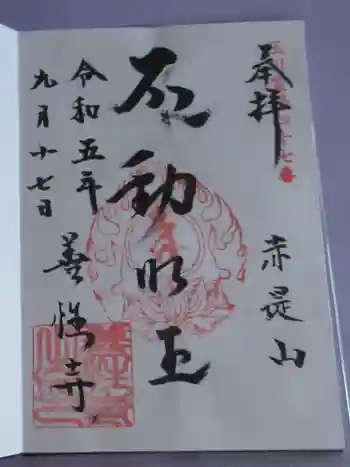 奉拝
赤是山
不動明王
令和五年
九月十七日
善性寺